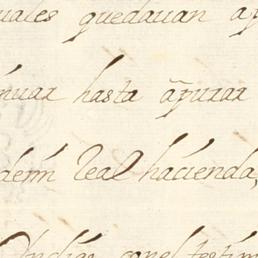 uales quedauan ap
nuar hasta apurar
demi Real hacienda,
Indias con el testim